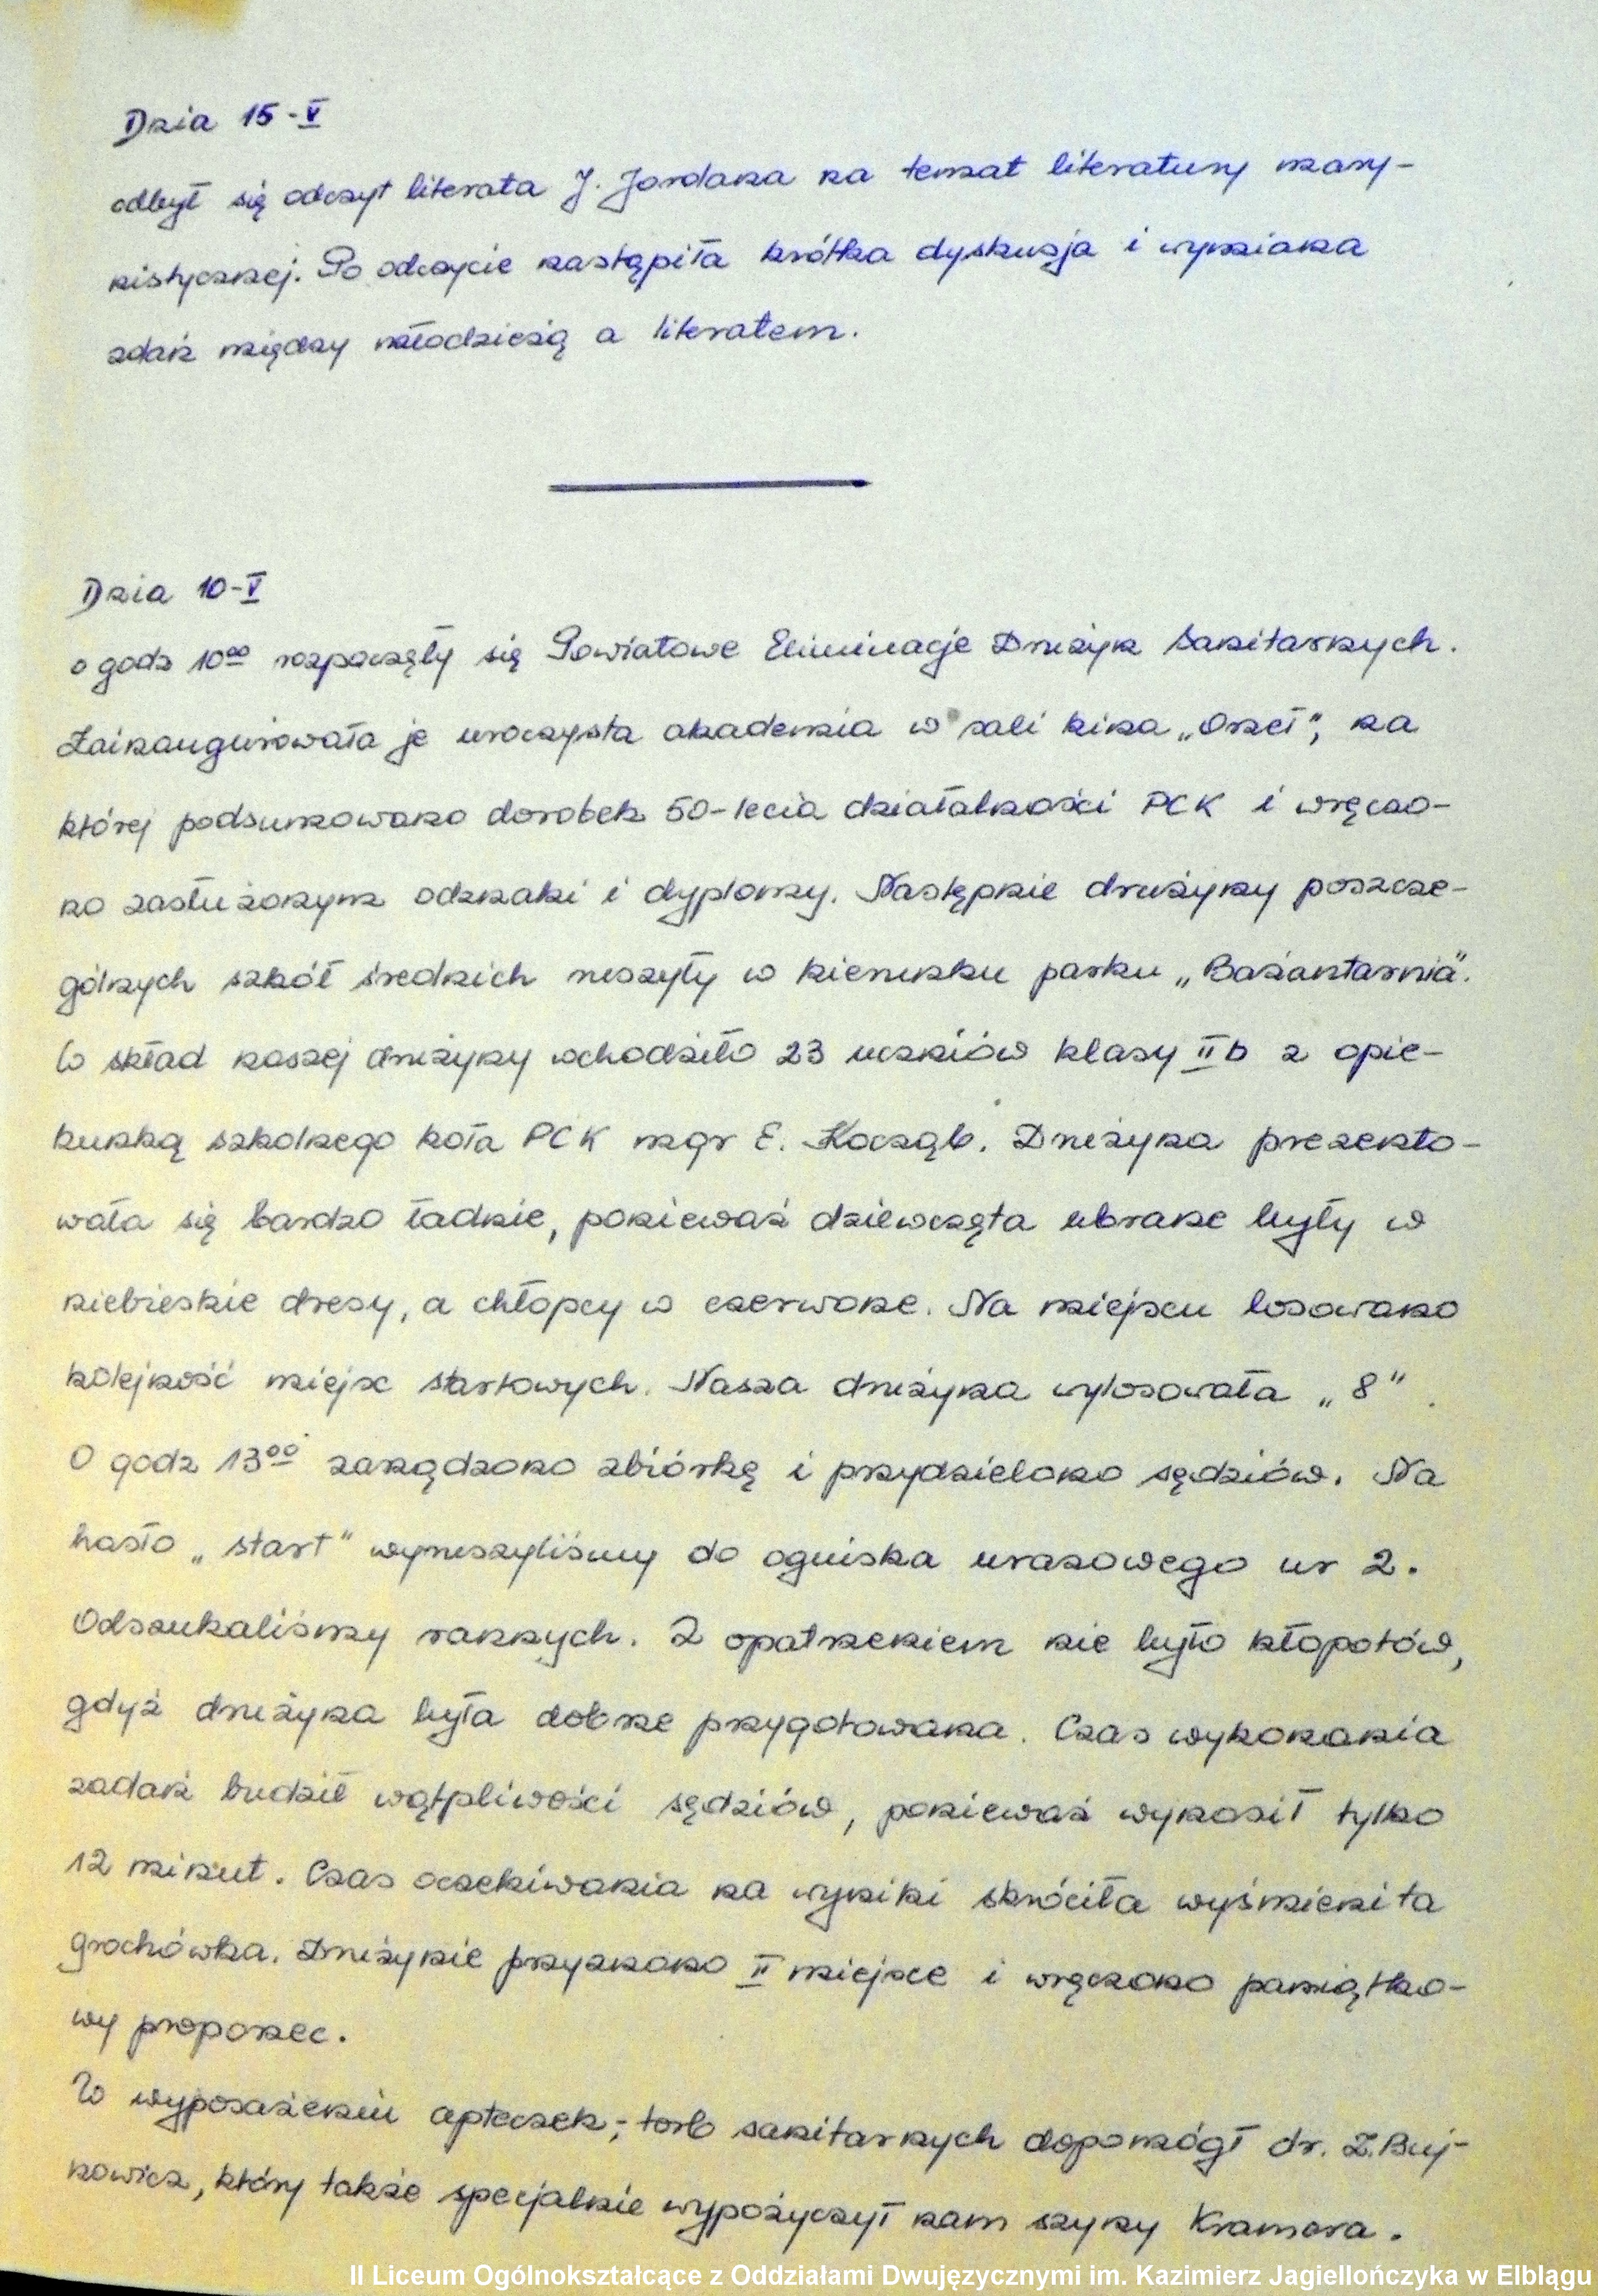 Dnia 15-V
odbył się odczyt literata J. Jordana na temat literatury mary-
nistycznej. Po odczycie nastąpiła krótka dyskusja i wymiana
zdań między młodzieżą a literatem.
Dnia 10-V
o godz 10⁰⁰ rozpoczęły się Powiatowe Eliminacje Drużyn Sanitarnych.
Zainaugurowała je uroczysta akademia w sali kina „Orzeł", na
której podsumowano dorobek 50-lecia działalności PCK i wręczo-
no zasłużonym odznaki i dyplomy. Następnie drużyny poszcze-
gólnych szkół średnich ruszyły w kierunku parku „Bażantarnia".
W skład naszej drużyny wchodziło 23 uczniów klasy II b z opie-
kunką szkolnego koła PCK mgr E. Kocząb. Drużyna prezento-
wała się bardzo ładnie, ponieważ dziewczęta ubrane były w
niebieskie dresy, a chłopcy w czerwone. Na miejscu losowano
kolejność miejsc startowych. Nasza drużyna wylosowała „8".
O godz 13⁰⁰ zarządzono zbiórkę i przydzielono sędziów. Na
hasło „start" wyruszyliśmy do ogniska urazowego nr 2.
Odszukaliśmy rannych. Z opatrzeniem nie było kłopotów,
gdyż drużyna była dobrze przygotowana. Czas wykonania
zadań budził wątpliwości sędziów, ponieważ wynosił tylko
12 minut. Czas oczekiwania na wyniki skróciła wyśmienita
grochówka. Drużynie przyznano II miejsce i wręczono pamiątko-
wy proporzec.
W wyposażeniu apteczek; torb sanitarnych dopomógł dr. Z. Buj-
nowicz, który także specjalnie wypożyczył nam szyny Kramera.
II Liceum Ogólnokształcące z Oddziałami Dwujęzycznymi im. Kazimierz Jagiellończyka w Elblągu